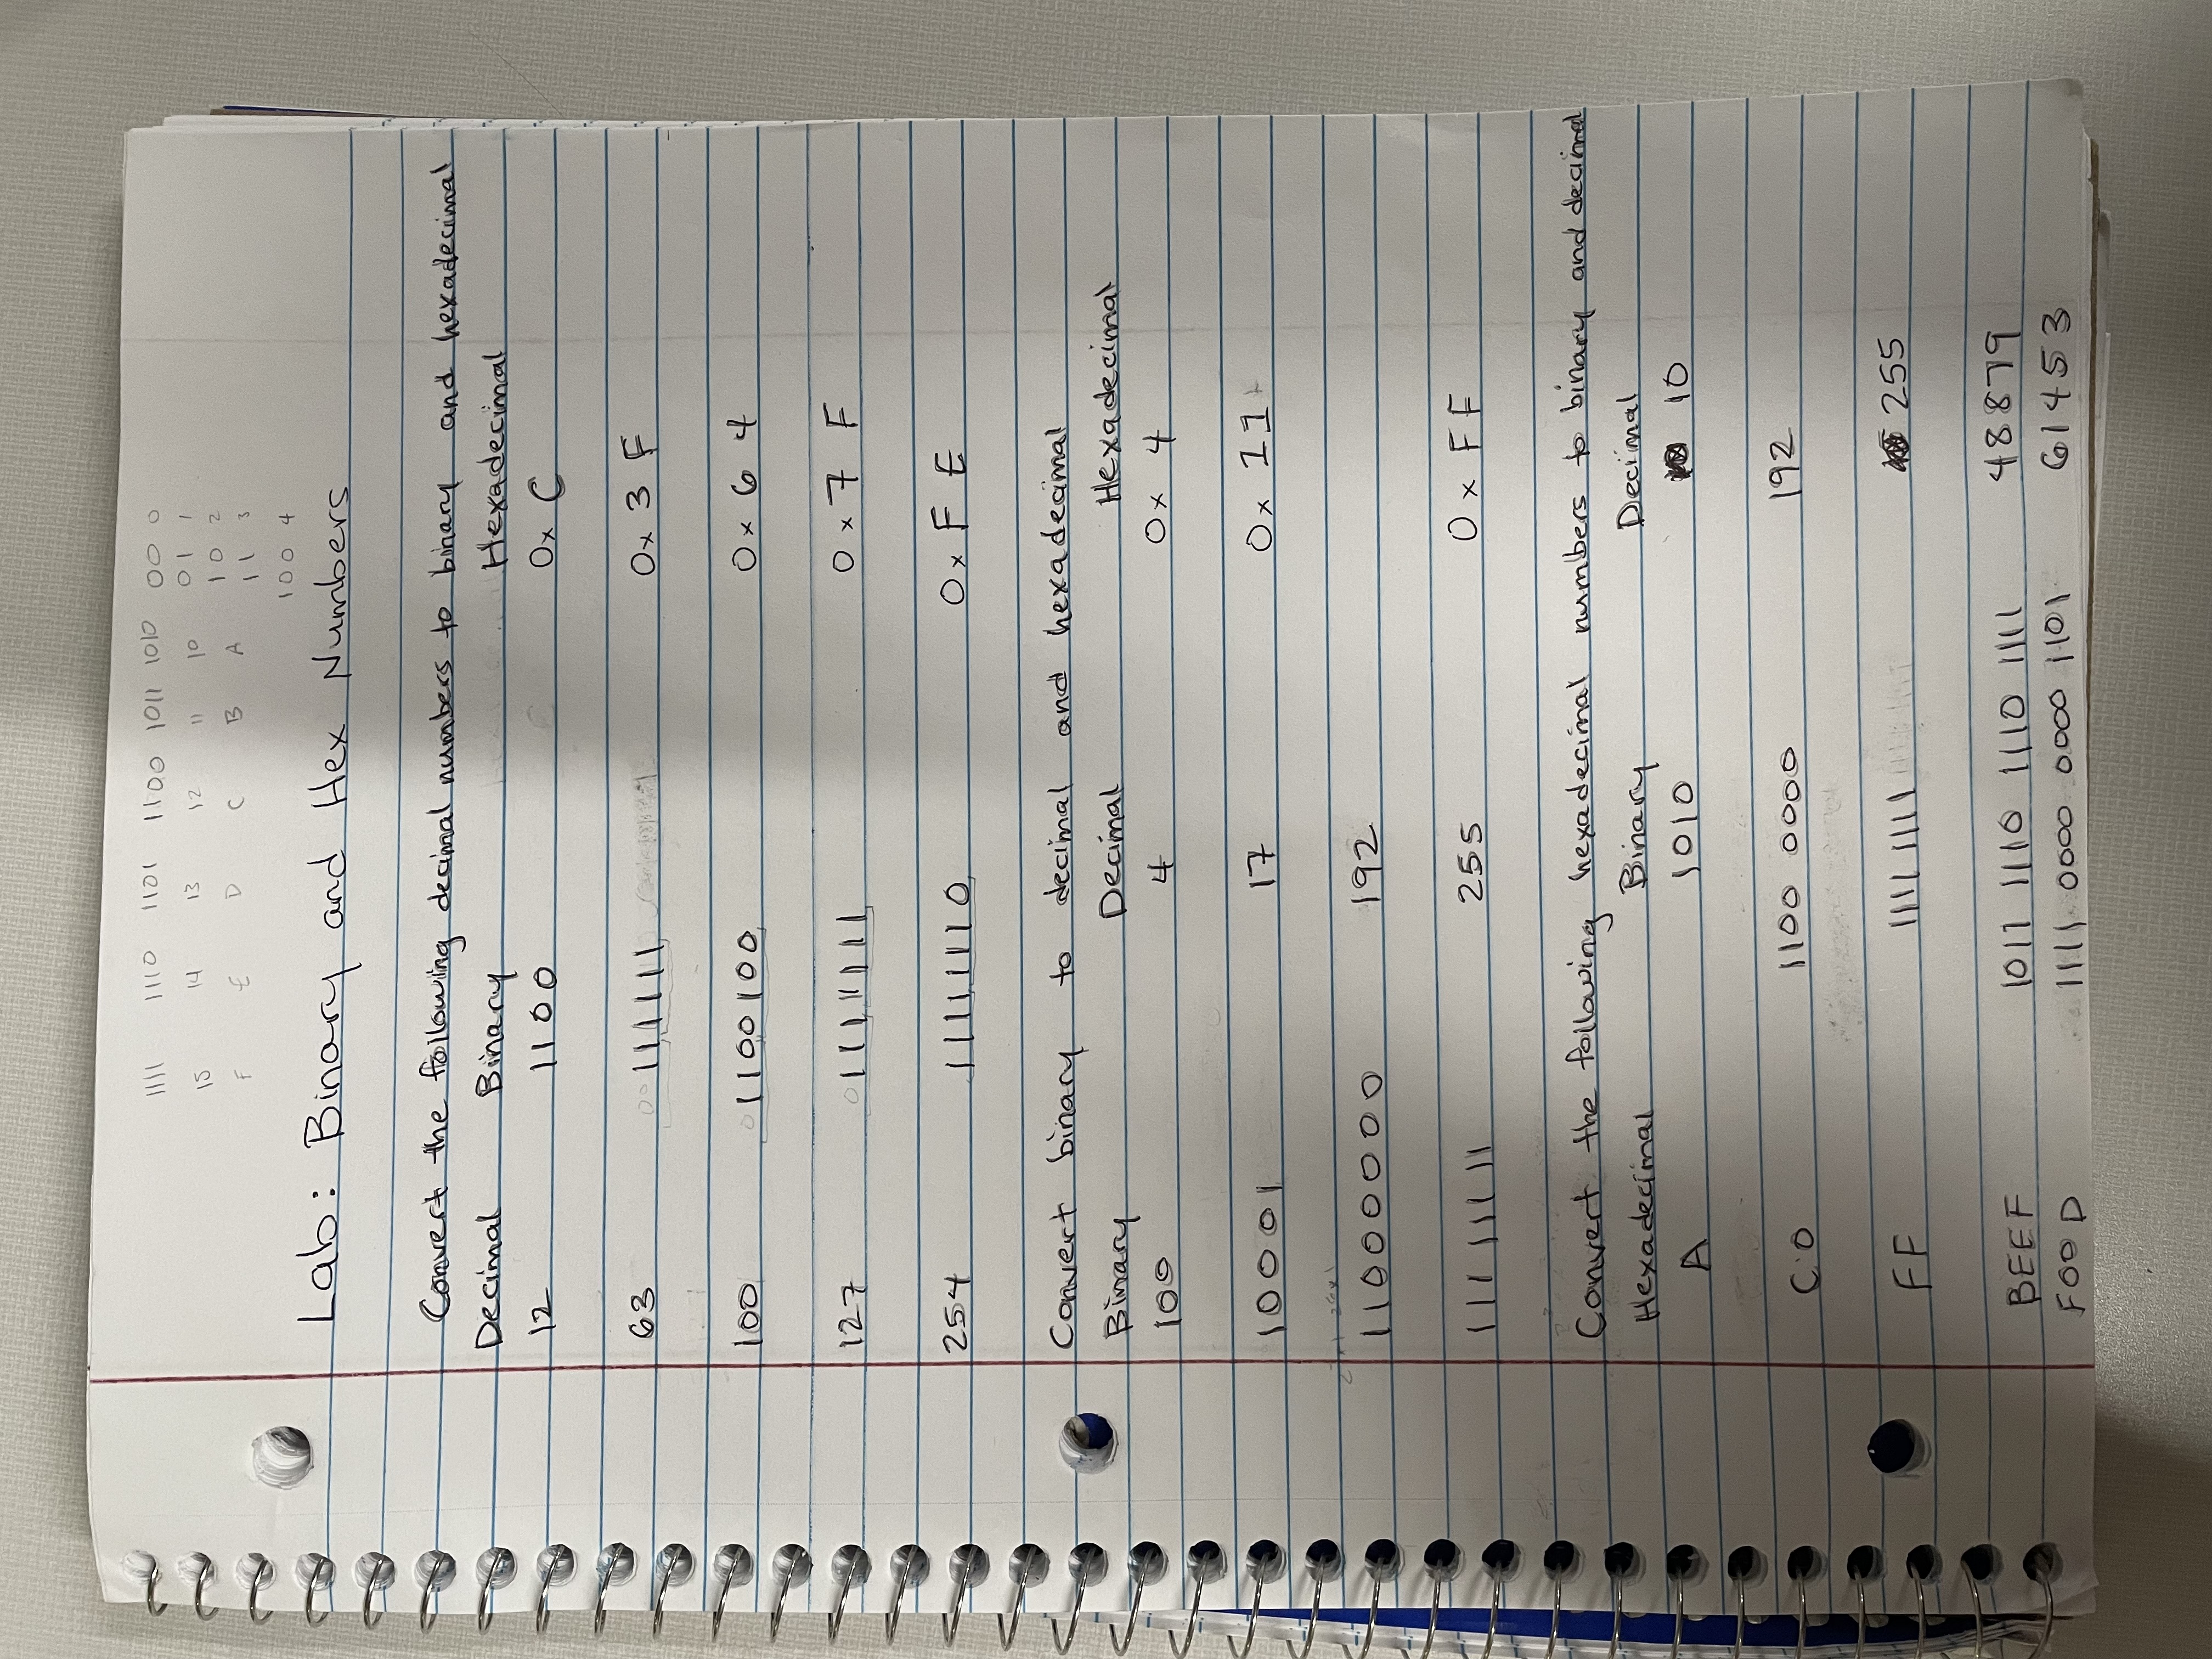 1111 1110 1101 1100 1011 1010 00 0
15 14 13 12 11 10 01 1
F E D C B A 10 2
11 3
100 4
Lab: Binary and Hex Numbers
Convert the following decimal numbers to binary and hexadecimal
Decimal Binary Hexadecimal
12 1100 0x C
63 00111111 0x 3 F
100 01100100 0x 6 4
127 01111111 0x 7 F
254 11111110 0x F E
Convert binary to decimal and hexadecimal
Binary Decimal Hexadecimal
100 4 0x 4
10001 17 0x 11
11000000 192
11111111 255 0x FF
Convert the following hexadecimal numbers to binary and decimal
Hexadecimal Binary Decimal
A 1010 10
C0 1100 0000 192
FF 1111 1111 255
BEEF 1011 1110 1110 1111 48879
F00D 1111 0000 0000 1101 61453